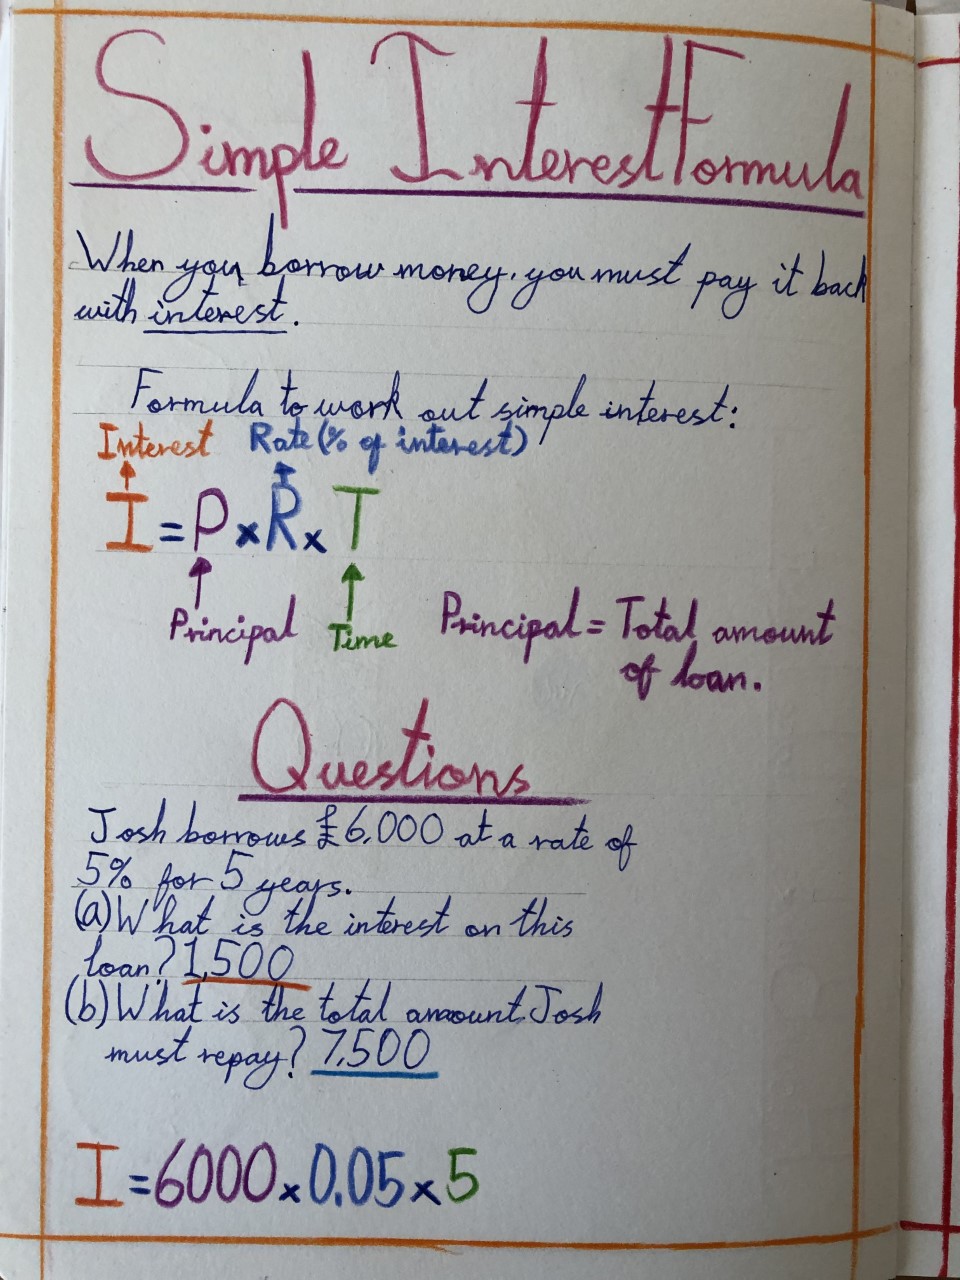 Simple Interest Formula
When you borrow money, you must pay it back
with interest.
Formula to work out simple interest:
Interest Rate (% of interest)
I = P x R x T
Principal Time
Principal = Total amount
of loan.
Questions
Josh borrows £6,000 at a rate of
5% for 5 years.
(a) What is the interest on this
loan? 1,500
(b) What is the total amount Josh
must repay? 7,500
I = 6000 x 0.05 x 5